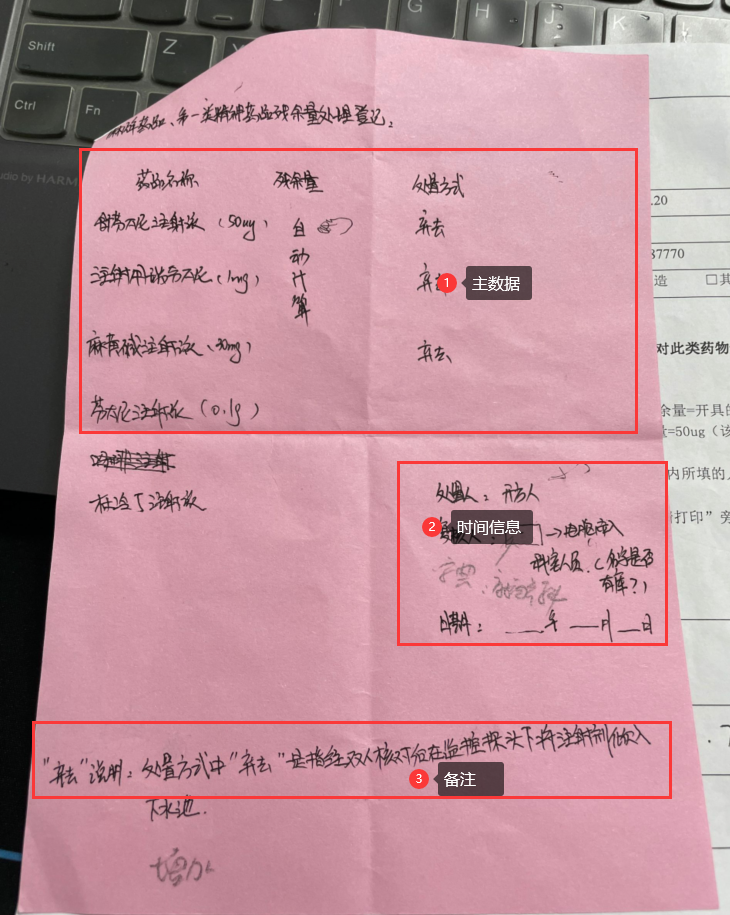 Shift
Z
G
H
J
K
Ctrl
Fn
麻醉药品、第一类精神药品残余量处理登记。
药品名称 残余量 处置方式
舒芬太尼注射液（50ug） 自 弃去
动
注射用瑞芬太尼（1mg） 计 弃
1 主数据
算
麻黄碱注射液（30mg） 弃去
芬太尼注射液（0.1g）
杜冷丁注射液
处置人：开方人
2 时间信息
→电脑录入
科室人员.（签字是否
有库？）
日期：___年___月___日
"弃去"说明：处置方式中"弃去"是指经双人核对后在监控探头下将注射剂倾入
3 备注
下水池.
增加
.20
87770
造 □其
对此类药物
余量=开具的
=50ug（该
内所填的
打印”旁